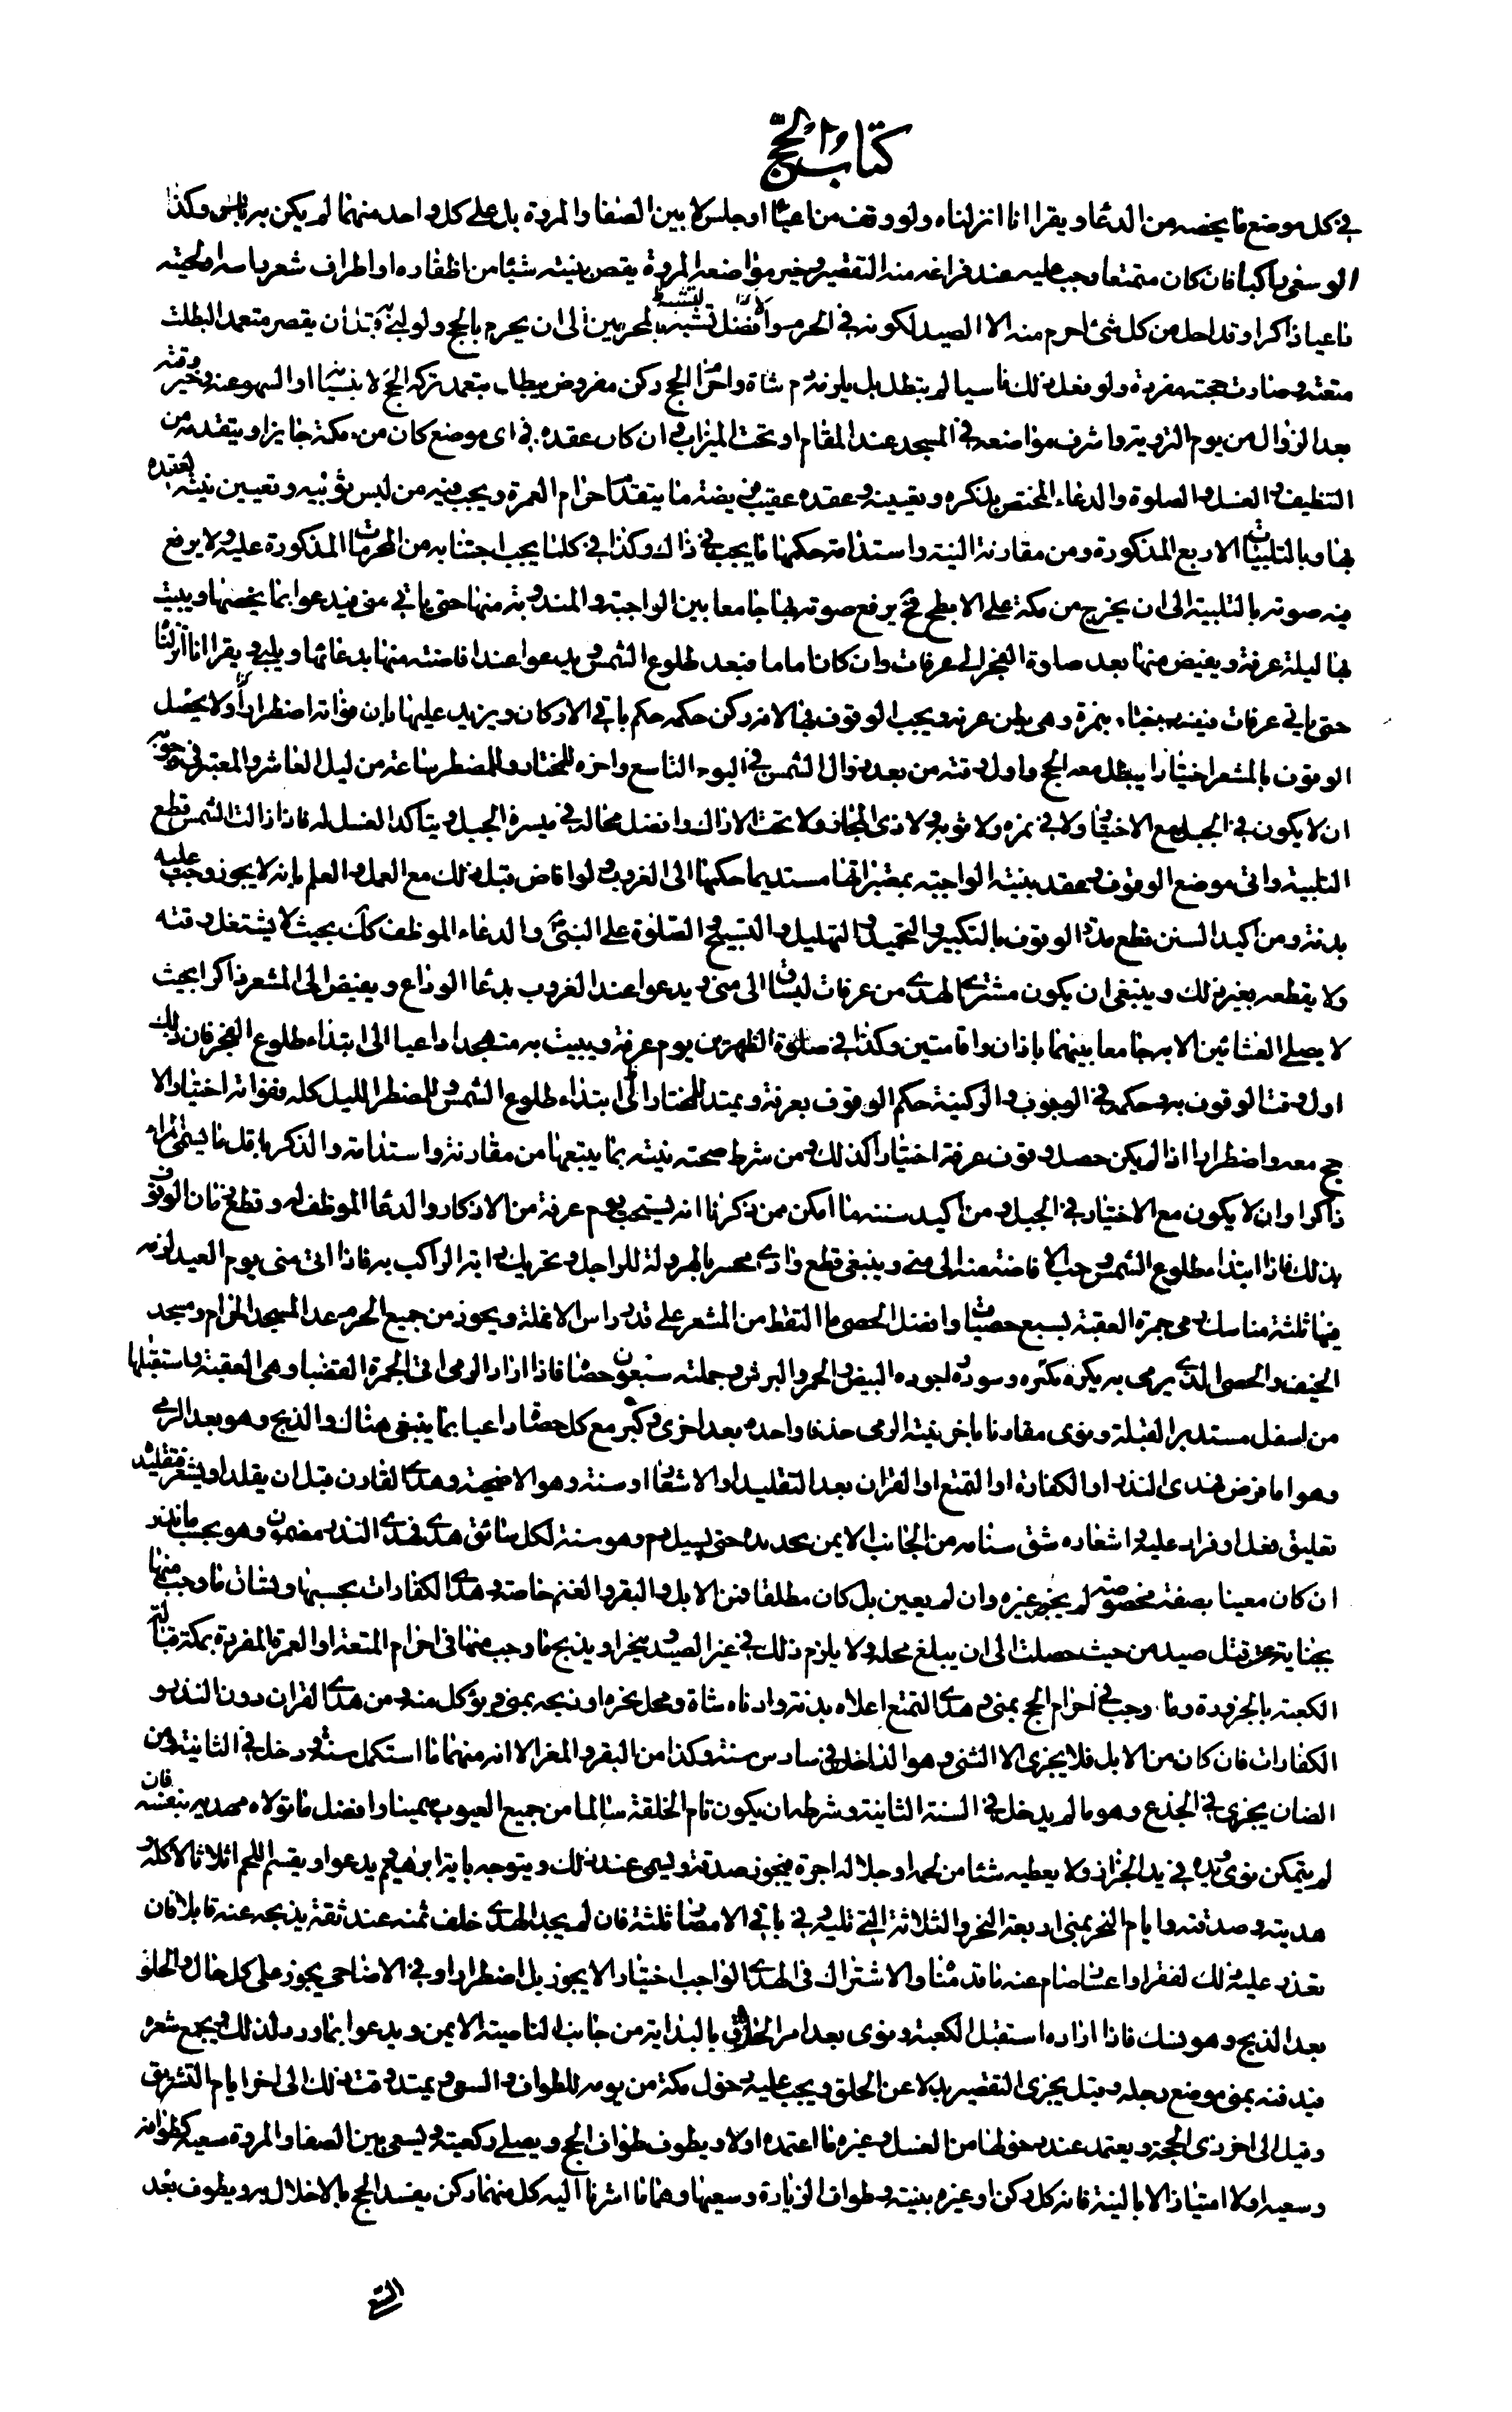 كتاب الحج
في كل موضع ما يخصه من الدعا ويقرا انا انزلناه ولو وقف من اعياء او جلس لا بين الصفا والمروة بل على كل واحد منهما لم يكن به باس وكذا
لو سعى راكبا فان كان متمتعا وجب عليه عند فراغه منه التقصير وخير مواضعه المروة يقص بنيته شيئا من اظفاره او اطراف شعر راسه او لحيته
داعيا ذاكرا وقد احل من كل شئ احرم منه الا الصيد لكونه في الحرم والافضل تشبهه بالمحرمين الى ان يحرم بالحج ولو لبى به قبل ان يقصر متعمدا بطلت
متعته وصارت حجته مفردة ولو فعل ذلك ناسيا لم يبطل بل يلزمه دم شاة واحرام الحج ركن مفروض يبطل بتعمد تركه الحج لا بنسيانه او السهو عنه وخير وقته
بعد الزوال من يوم التروية واشرف مواضعه في المسجد عند المقام او تحت الميزاب وان كان عقده في اى موضع كان من مكة جايزا ويتقدمه من
التنظيف والغسل والصلوة والدعاء المختص بذكره وتعيينه وعقده عقيب فريضة ما يتقدم احرام العمرة ويجب فيه من لبس ثوبيه وتعيين نيته لعقده
بها وبالتلبيات الاربع المذكورة ومن مقارنة النية واستدامة حكمها ما يجب في ذاك وكذا في كلما يجب اجتنابه من المحرمات المذكورة عليه ولا يرفع
فيه صوته بالتلبية الى ان يخرج من مكة على الابطح فح يرفع صوته بها جامعا بين الواجبة والمندوبة منها حتى ياتي منى فيدعوا بما يخصها ويبيت
بها ليلة عرفة ويفيض منها بعد صلوة الفجر الى عرفات وان كان اماما فبعد طلوع الشمس ويدعوا عند افاضته منها بدعائها ويلبي ويقرا انا انزلناه
حتى ياتي عرفات فيضرب خباءه بنمرة وهي بطن عرنة ويجب الوقوف بها لانه ركن حكمه حكم باقي الاركان ويزيد عليها بان فواته اضطرارا ولا يحصل
الوقوف بالمشعر اختيارا يبطل معه الحج واول وقته من بعد زوال الشمس في اليوم التاسع واخره للمختار وللمضطر ساعة من ليل العاشر والمعتبر في
ان لا يكون في الجبل مع الاختيار ولا في نمرة ولا ثوية ولا ذى المجاز ولا تحت الاراك وافضل محاله في ميسرة الجبل ويتاكد الغسل له فاذا زالت الشمس قطع
التلبية واتى موضع الوقوف وعقد بنيته الواجبة بمعتبراتها مستديما حكمها الى الغروب ولو افاض قبل ذلك مع العمد والعلم بانه لا يجوز وجب عليه
بدنة ومن اكيد السنن قطع مدة الوقوف بالتكبير والتحميد والتهليل والتسبيح والصلوة على النبي ص والدعاء الموظف كك بحيث لا يشتغل وقته
ولا يقطعه بغير ذلك وينبغي ان يكون مشترى الهدى من عرفات ليساق الى منى ويدعوا عند الغروب بدعا الوداع ويفيض الى المشعر ذاكرا بحيث
لا يصلي العشائين الا به جامعا بينهما باذان واقامتين وكذا في صلوة الظهرين يوم عرفة ويبيت به متهجدا داعيا الى ابتداء طلوع الفجر فان ذلك
اول وقت الوقوف به وحكمه في الوجوب والركنية حكم الوقوف بعرفة ويمتد للمختار الى ابتداء طلوع الشمس وللمضطر الليل كله وفواته اختيارا لا
حج معه واضطرارا اذا لم يكن حصل وقوف عرفة اختيارا كذلك ومن شرط صحته نيته بما يتبعها من مقارنة واستدامة والذكر باقل ما يسمى المرء
ذاكرا وان لا يكون مع الاختيار في الجبل ومن اكيد سننه ما امكن من ذكرنا انه يستحب يوم عرفة من الاذكار والدعا الموظف له وقطع زمان الوقوف
بذلك فاذا ابتدا طلوع الشمس وجب الافاضة منه الى منى وينبغي قطع وادى محسر بالهرولة للراجل وتحريك دابة الراكب به فاذا اتى منى يوم العيد لزمه
فيها ثلثة مناسك رمى جمرة العقبة بسبع حصيات وافضل الحصى ما التقط من المشعر على قدر راس الانملة ويجوز من جميع الحرم عدا المسجد الحرام ومسجد
الخيف والحصى الذى يرمى به يكره مكسره وسوده لجوده البيض والحمر والبرش وجملته سبعون حصاة فاذا اراد الرمى اتى الجمرة القصوا وهى العقبة واستقبلها
من اسفل مستدبر القبلة ونوى مقارنا باخر نيته الرمى حذفا واحدة بعد اخرى وكبر مع كل حصاة داعيا بما ينبغي هناك والذبح وهو بعد الرمى
وهو اما فرض فهدى النذر او الكفارة او التمتع او القران بعد التقليد او الاشعار او سنة وهو الاضحية وهدى القارن قبل ان يقلد او يشعر فتقليده
تعليق نعل او مزادة عليه واشعاره شق سنامه من الجانب الايمن بحديدة حتى يسيل دم وهو سنة لكل سائق هدى فهدى النذر مضمون وهو بحسب ما نذر
ان كان معينا بصفة مخصوصة لم يجز غيره وان لم يعين بل كان مطلقا فمن الابل والبقر والغنم خاصة وهدى الكفارات بحسبها ويساق ما وجب منها
بجناية عن قتل صيد من حيث حصلت الى ان يبلغ محله ولا يلزم ذلك في غير الصيد وينحر او يذبح ما وجب منها في احرام المتعة او العمرة المفردة بمكة قبالة
الكعبة بالحزورة وما وجب في احرام الحج بمنى وهدى التمتع اعلاه بدنة وادناه شاة ومحل نحره او ذبحه بمنى ويؤكل منه ومن هدى القران دون النذر و
الكفارات فان كان من الابل فلا يجزى الا الثنى وهو الداخل في سادس سنة وكذا من البقر والمعز الا انه منهما ما استكمل سنة ودخل في الثانية ومن
الضان يجزى في الجذع وهو ما لم يدخل في السنة الثانية وشرطه ان يكون تام الخلقة سالما من جميع العيوب سمينا وافضل ما تولاه مهديه بنفسه فان
لم يتمكن نوى ويده في يد الجزار ولا يعطيه شئا من لحمه او جلاله اجرة فيجوز صدقة ويسمى عند ذلك ويتوجه باية ابرهيم ويدعوا ويقسم اللحم اثلاثا لاكله و
هديته وصدقته وايام النحر بمنى اربعة النحر والثلاثة التي تليه وفي باقي الامصار ثلثة فان لم يجد الهدى خلف ثمنه عند ثقة يذبحه عنه قابلا فان
تعذر عليه ذلك لفقر او اعسار صام عنه ما قدمناه والاشتراك في الهدى الواجب اختيارا لا يجوز بل اضطرارا وفي الاضاحى يجوز على كل حال والحلق
بعد الذبح وهو نسك فاذا اراده استقبل الكعبة ونوى بعد امر الحلاق بالبداية من جانب الناصية الايمن ويدعوا بما ورد لذلك ويجمع شعره
فيدفنه بمنى موضع رحله وقيل يجزى التقصير بدلا عن الحلق ويجب عليه دخول مكة من يومه للطواف والسعى ويمتد وقت ذلك الى اخر ايام التشريق
وقيل الى اخر ذى الحجة ويعتمد عند دخولها من الغسل وغيره ما اعتمده اولا ويطوف طواف الحج ويصلي ركعيته ويسعى بين الصفا والمروة سعيه كطوافه
وسعيه اولا امتياز الا بالنية فانه كل ركن او غيره بنيته وطواف الزيارة وسعيها وهما ما اشرنا اليه كل منهما ركن يفسد الحج بالاخلال به ويطوف بعد